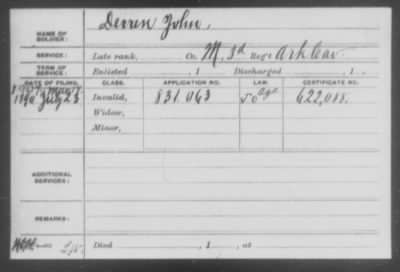 NAME OF SOLDIER: Derren John,
SERVICE: Late rank, Co. M. 3d Reg't Ark Cav
TERM OF SERVICE: Enlisted , 1 Discharged , 1 .
DATE OF FILING. CLASS. APPLICATION NO. LAW. CERTIFICATE NO.
1890 July 23 Invalid, 831.063 Age 622,088.
Widow,
Minor,
ADDITIONAL SERVICES:
REMARKS:
Died , 1 , at